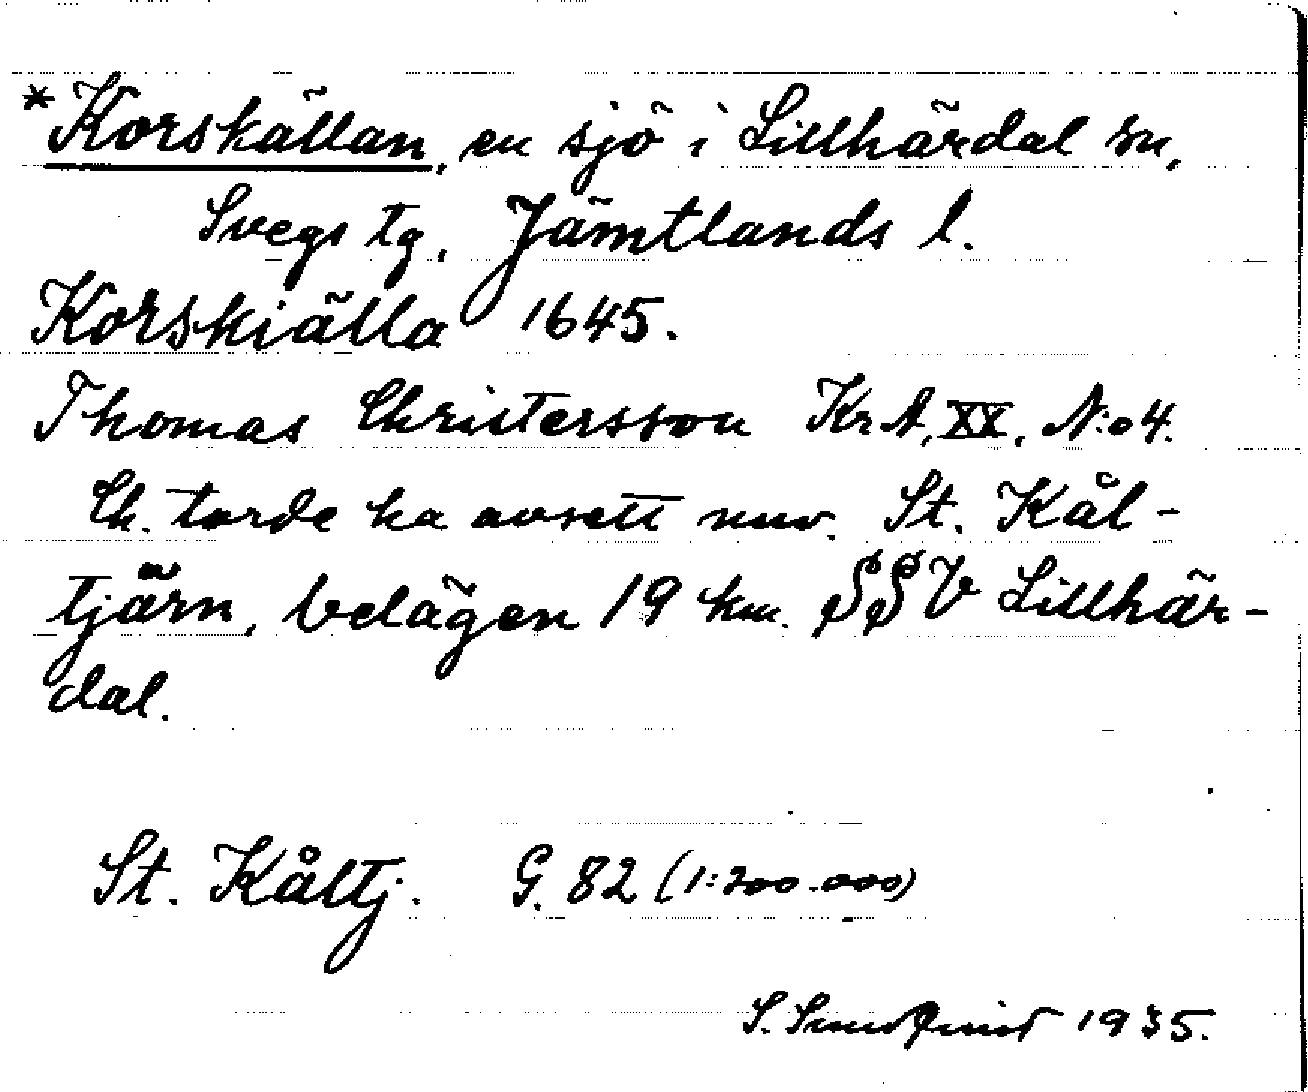 *Korskällan, en sjö i Lillhärdal sn,
Svegs tg, Jämtlands l.
Korskiälla 1645.
Thomas Christersson KrA, XX, N:o 4.
Ch. torde ha avsett nuv. St. Kål-
tjärn, belägen 19 km. SSV Lillhär-
dal.
St. Kåltj. G. 82 (1:200.000)
S. Sundqvist 1935.